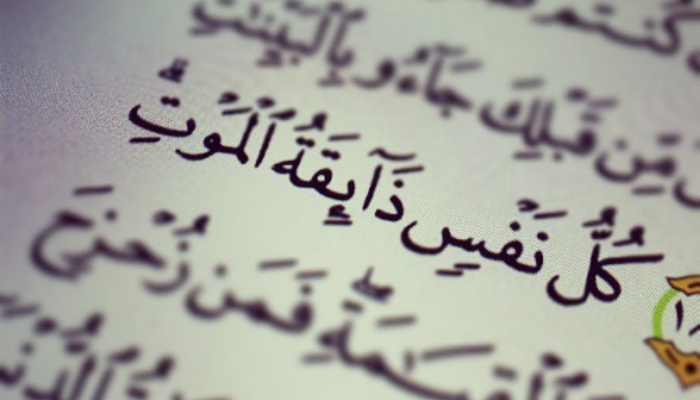 كُنتُمْ
مِّن قَبْلِكَ جَآءُو بِٱلْبَيِّنَٰتِ
كُلُّ نَفْسٍ ذَآئِقَةُ ٱلْمَوْتِ ۗ
ٱلْقِيَٰمَةِ ۖ فَمَن زُحْزِحَ